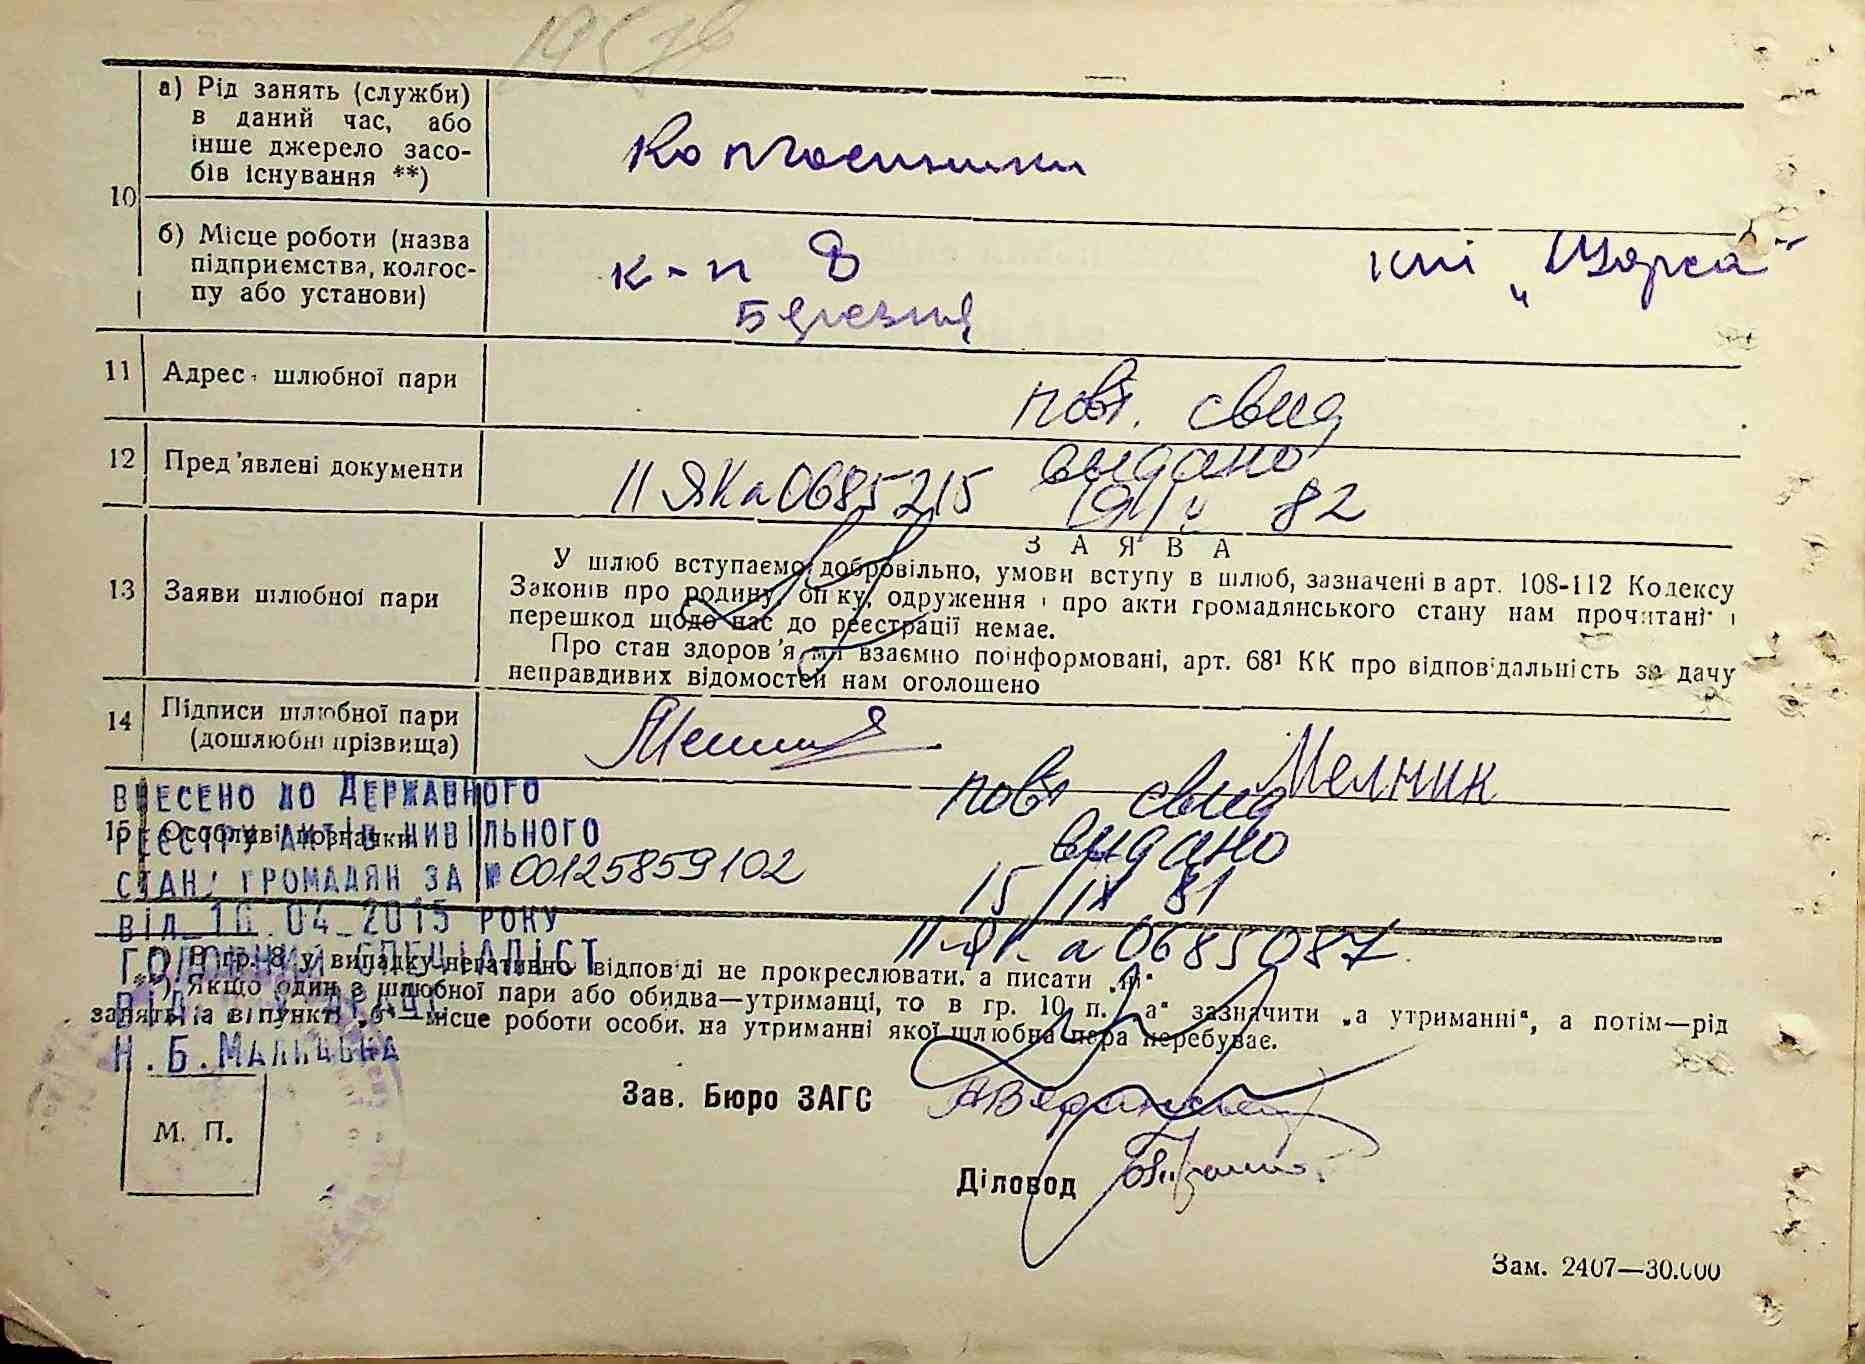 а) Рід занять (служби)
в даний час, або
інше джерело засо-
бів існування **)
Колгоспники
10
б) Місце роботи (назва
підприємства, колгос-
пу або установи)
к-п 8
Березня
кмі „Щорса“
11 Адрес шлюбної пари
повт. свид
12 Пред'явлені документи
выдано
II ЯКа 0685215 19/IV 82
13 Заяви шлюбної пари
ЗАЯВА
У шлюб вступаємо добровільно, умови вступу в шлюб, зазначені в арт. 108-112 Кодексу
Законів про родину, опіку, одруження і про акти громадянського стану нам прочитані і
перешкод щодо нас до реєстрації немає.
Про стан здоров'я ми взаємно поінформовані, арт. 68¹ КК про відповідальність за дачу
неправдивих відомостей нам оголошено
14 Підписи шлюбної пари
(дошлюбні прізвища)
Мелник
повт свид
выдано
15/IX 81
II-ЯК а 0685087.
15 Особливі позначки
ВНЕСЕНО ДО ДЕРЖАВНОГО
РЕЄСТРУ АКТІВ ЦИВІЛЬНОГО
СТАНУ ГРОМАДЯН ЗА № 00125859102
ВІД 10.04.2015 РОКУ
ГОЛОВНИЙ СПЕЦІАЛІСТ
Н.Б.
В гр. 8 у випадку негативно відповіді не прокреслювати, а писати „ні“
**) Якщо один з шлюбної пари або обидва—утриманці, то в гр. 10 п. „а“ зазначити „а утриманні“, а потім—рід
занять, а в пункті „б“—місце роботи особи, на утриманні якої шлюбна пара перебуває.
Зав. Бюро ЗАГС
М. П.
Діловод
Зам. 2407—30.000